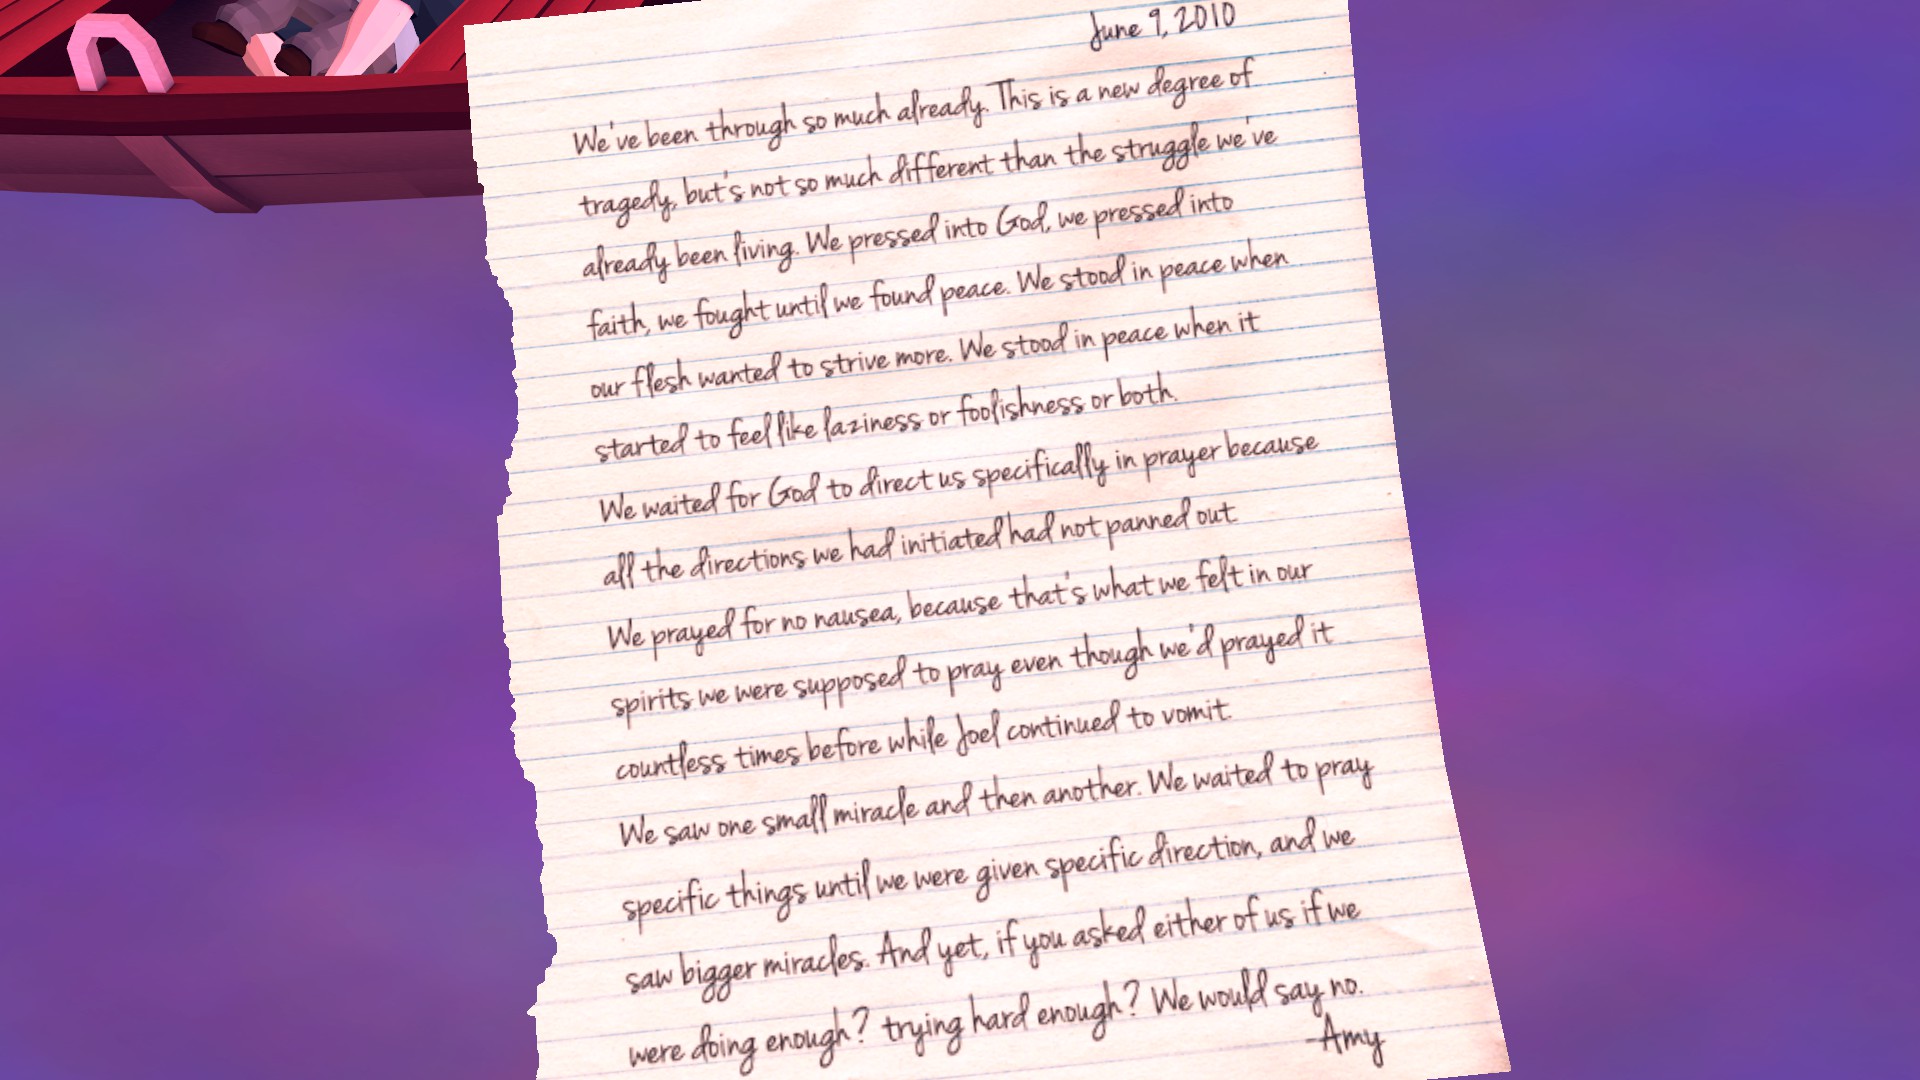 June 9, 2010
We've been through so much already. This is a new degree of
tragedy, but's not so much different than the struggle we've
already been living. We pressed into God, we pressed into
faith, we fought until we found peace. We stood in peace when
our flesh wanted to strive more. We stood in peace when it
started to feel like laziness or foolishness or both.
We waited for God to direct us specifically in prayer because
all the directions we had initiated had not panned out
We prayed for no nausea, because that's what we felt in our
spirits we were supposed to pray even though we'd prayed it
countless times before while Joel continued to vomit.
We saw one small miracle and then another. We waited to pray
specific things until we were given specific direction, and we
saw bigger miracles. And yet, if you asked either of us if we
were doing enough? trying hard enough? We would say no.
-Amy